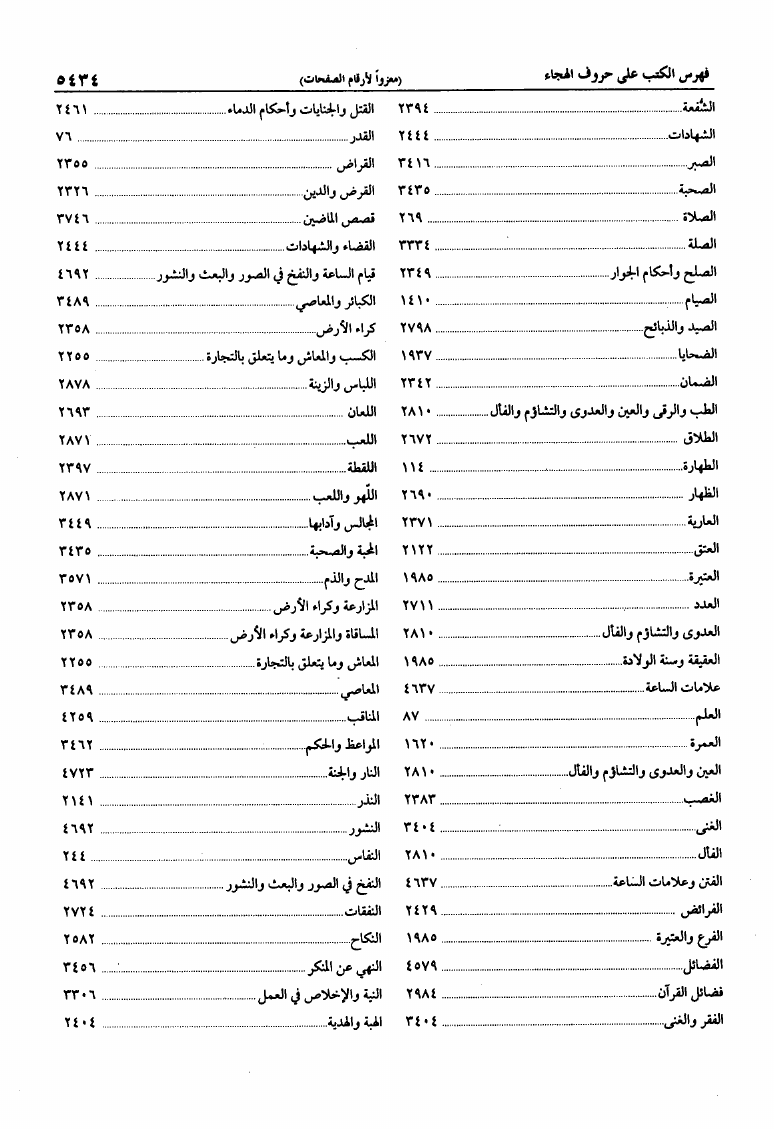 فهرس الكتب على حروف الهجاء (معزواً لأرقام الصفحات) ٥٤٣٤
الشُفعة ٢٣٩٤
الشهادات ٢٤٤٤
الصبر ٣٤١٦
الصحبة ٣٤٣٥
الصلاة ٢٦٩
الصلة ٣٣٣٤
الصلح وأحكام الجوار ٢٣٤٩
الصيام ١٤١٠
الصيد والذبائح ٢٧٩٨
الضحايا ١٩٣٧
الضمان ٢٣٤٢
الطب والرقى والعين والعدوى والتشاؤم والفأل ٢٨١٠
الطلاق ٢٦٧٢
الطهارة ١١٤
الظهار ٢٦٩٠
العارية ٢٣٧١
العتق ٢١٢٢
العتيرة ١٩٨٥
العدد ٢٧١١
العدوى والتشاؤم والفأل ٢٨١٠
العقيقة وسنة الولادة ١٩٨٥
علامات الساعة ٤٦٣٧
العلم ٨٧
العمرة ١٦٢٠
العين والعدوى والتشاؤم والفأل ٢٨١٠
الغصب ٢٣٨٣
الغنى ٣٤٠٤
الفأل ٢٨١٠
الفتن وعلامات الساعة ٤٦٣٧
الفرائض ٢٤٢٩
الفرع والعتيرة ١٩٨٥
الفضائل ٤٥٧٩
فضائل القرآن ٢٩٨٤
الفقر والغنى ٣٤٠٤
القتل والجنايات وأحكام الدماء ٢٤٦١
القدر ٧٦
القراض ٢٣٥٥
القرض والدين ٢٣٢٦
قصص الماضين ٣٧٤٦
القضاء والشهادات ٢٤٤٤
قيام الساعة والنفخ في الصور والبعث والنشور ٤٦٩٢
الكبائر والمعاصي ٣٤٨٩
كراء الأرض ٢٣٥٨
الكسب والمعاش وما يتعلق بالتجارة ٢٢٥٥
اللباس والزينة ٢٨٧٨
اللعان ٢٦٩٣
اللعب ٢٨٧١
اللقطة ٢٣٩٧
اللّهو واللعب ٢٨٧١
المجالس وآدابها ٣٤٤٩
المحبة والصحبة ٣٤٣٥
المدح والذم ٣٥٧١
المزارعة وكراء الأرض ٢٣٥٨
المساقاة والمزارعة وكراء الأرض ٢٣٥٨
المعاش وما يتعلق بالتجارة ٢٢٥٥
المعاصي ٣٤٨٩
المناقب ٤٢٥٩
المواعظ والحكم ٣٤٦٢
النار والجنة ٤٧٢٣
النذر ٢١٤١
النشور ٤٦٩٢
النفاس ٢٤٤
النفخ في الصور والبعث والنشور ٤٦٩٢
النفقات ٢٧٢٤
النكاح ٢٥٨٢
النهي عن المنكر ٣٤٥٦
النية والإخلاص في العمل ٣٣٠٦
الهبة والهدية ٢٤٠٤